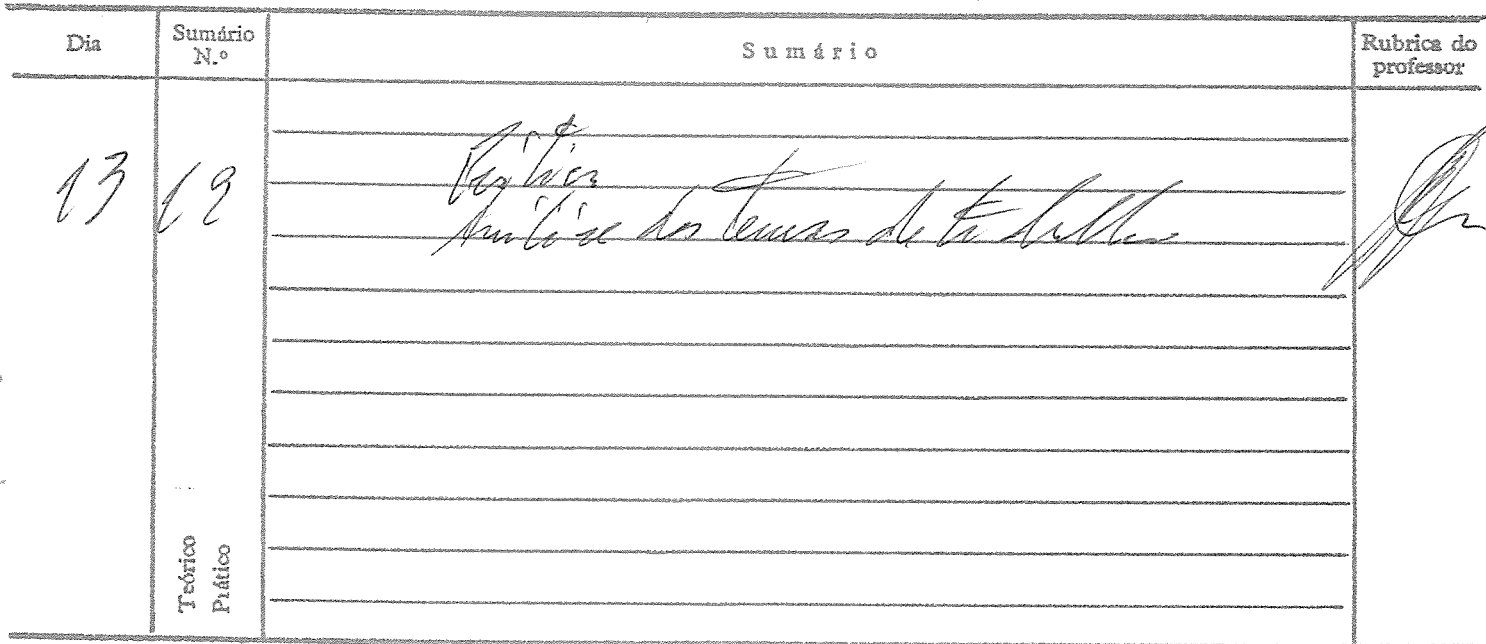 Dia
Sumário
N.º
Sumário
Rubrica do
professor
13
19
Prática
Análise dos temas de trabalho
Teórico
Prático